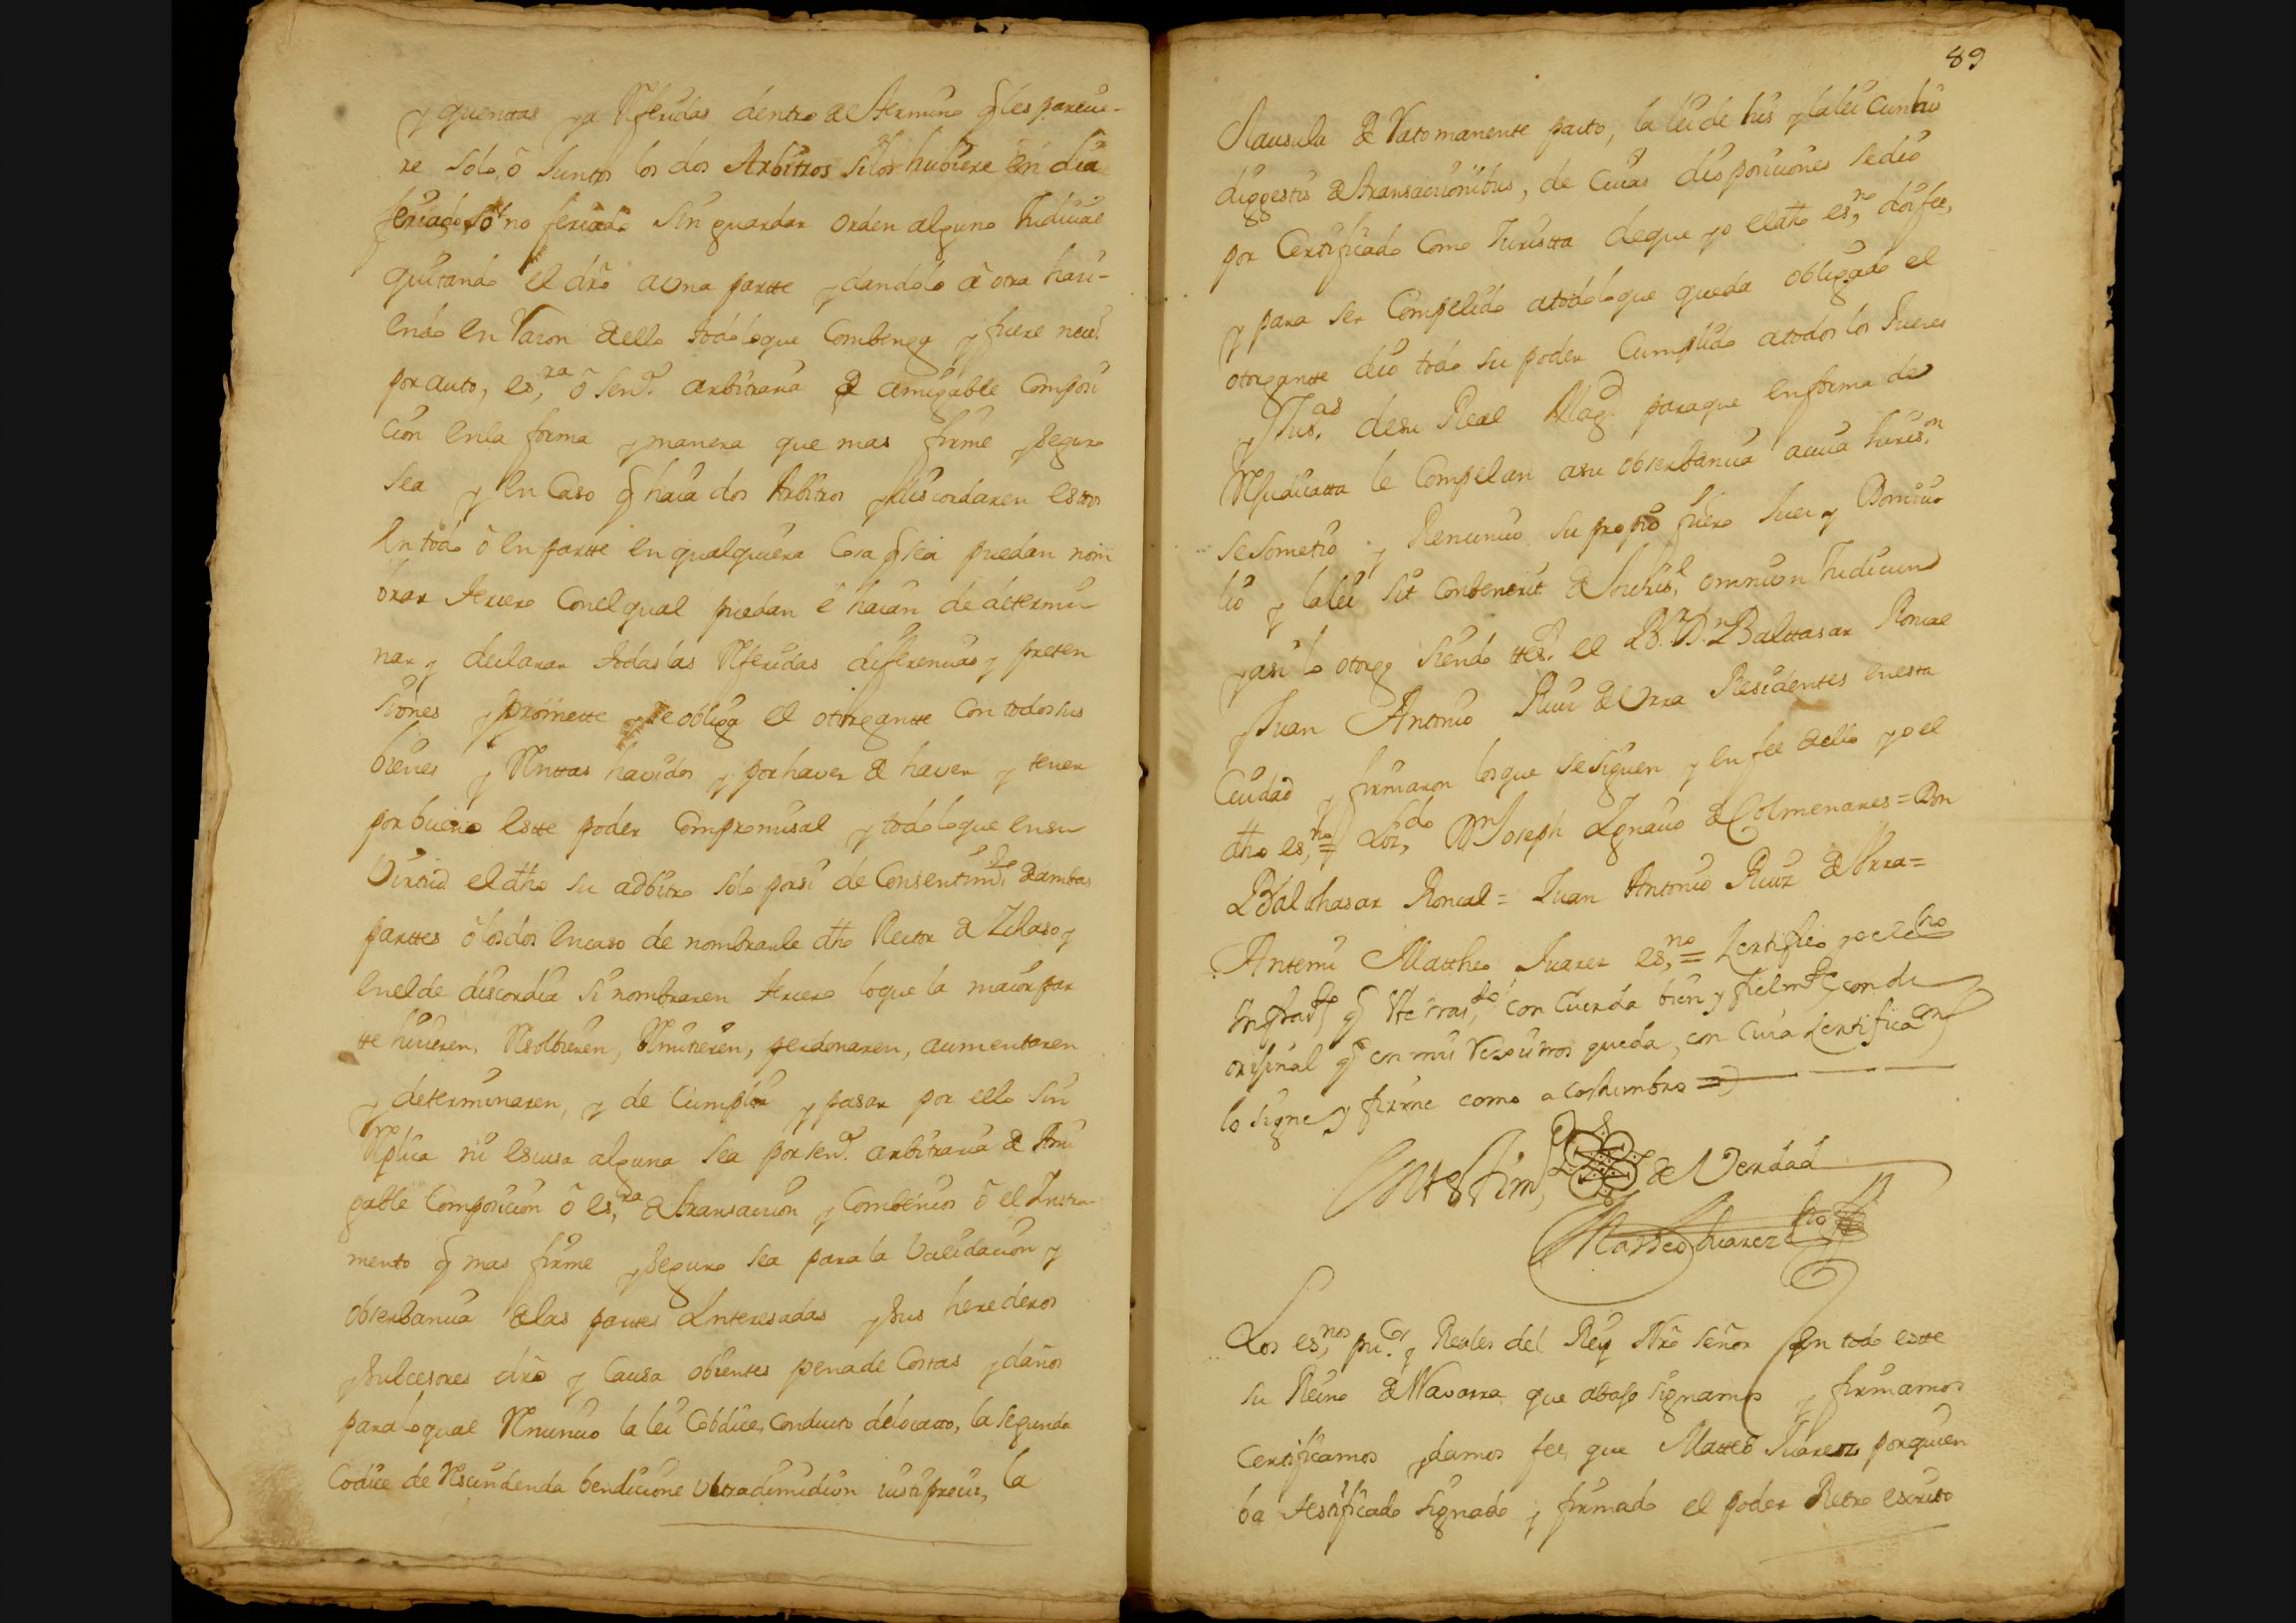 y quenttas ya Referidas dentro del termino q les parecie-
re solo, ô Juntos los dos Arbitros si los hubiere en dia
feriado, ô no feriado sin guardar orden alguno Judicial
quitando el drõ a una partte y dandolo â otra haci-
endo en Razon dello todo lo que Combenga y fuere neces.
por auto, es,ra ô senª. arbitraria de amigable Composi
cion en la forma y manera que mas firme y seguro
sea y en Caso q haia dos Arbitros y discordaren estos
en todo ô en partte en qualquiera Cosa q sea puedan nom
brar tercero Con el qual puedan ê haian de determi
nar y declarar todas las Referidas diferencias y preten
siones y promette y se obliga el otorgantte Con todos sus
bienes y Renttas havidos y por haver de haver y tener
por bueno estte poder Compromisal y todo lo que en su
Virtud el dho su adbitro solo por si de Consentimte de ambas
parttes ô los dos en caso de nombrarle dho Rector de Zilaso y
en el de discordia si nombraren tercero lo que la maior par
tte hicieren, Resolbieren, Remitieren, perdonaren, aumentaren
y determinaren, y de Cumplir y pasar por ello sin
Replica ni escusa alguna sea por senª. arbitraria de Ami
gable Composicion ô es,ra de transaccion y Combenios ô el Instru
mento q mas firme y seguro sea para la Validacion y
obserbancia de las parttes Interesadas y sus herederos
y subcesores drõ y Causa obientes pena de Costas y daños
para lo qual Renuncio la lei Cobdice, conducto de locato, la segunda
Codice de Rescindenda bendicione Ultra dimidium iusti precii, la
89
Clausula de Rato manente pacto, la lei de his y la lei Cum his
diggestis de transacionibus, de Cuias disposiciones se dio
por Certificado Como Juristta de que yo el dho es,no doi fee,
y para ser Compelido a todo lo que queda obligado el
otorgantte dio todo su poder Cumplido a todos los Jueces
y Jus.as de su Real Magd. para que en forma de
Rejudicatta le Compelan a su obserbancia a cuia Juris.on
se sometio y Renuncio su propio fuero Juez y Domici
lio y la lei Sit Conbenerit de Juris.e omnium Judicum
y asi lo otorgo siendo ttes. el B.r D.n Balttasar Roncal
y Juan Antonio Ruiz de Urra Residentes en esta
Ciudad y firmaron los que se siguen y en fee dello yo el
dho es,no = Liz,do Dn Joseph Ignacio de Colmenares = Don
Balthasar Roncal = Juan Antonio Ruiz de Urra =
Antemi Mattheo Juarez es,no = Zertifico yo el es,no
Infrate q este tras,do con Cuerda bien y fielmte con su
orijinal q en mis Rexistros queda, en Cuia Zertificacon
lo signe y firme como acostumbro =
En testim,o de Verdad
Mattheo Juarez es,no
Los es,nos pu.cos y Reales del Rey Nrõ Señor en todo estte
su Reino de Navarra que abajo signamos y firmamos
Certificamos y damos fee que Matteo Juarez por quien
ba testificado signado y firmado el poder Retro escrito